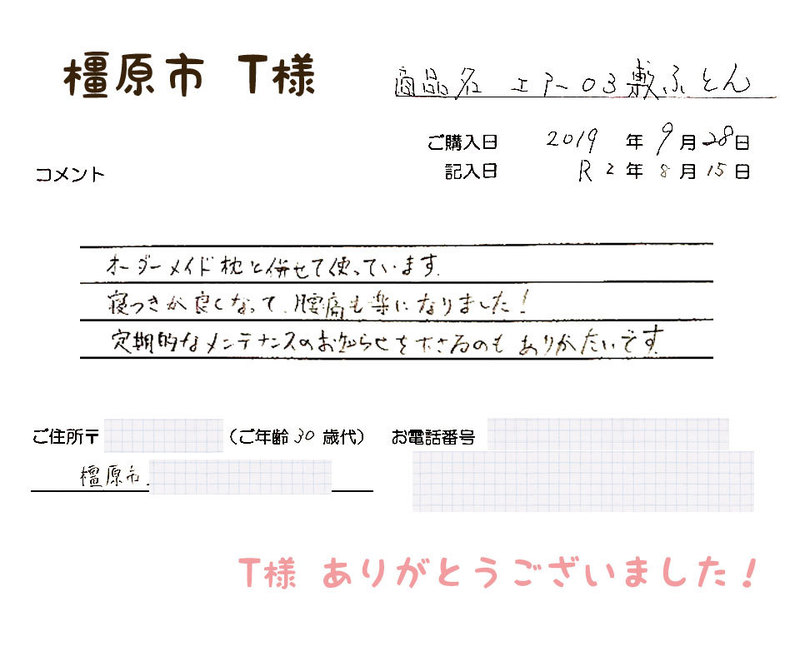 橿原市 T様
商品名 エアー03敷ふとん
ご購入日 2019年9月28日
記入日 R2年8月15日
コメント
オーダーメイド枕と併せて使っています。
寝つきが良くなって、腰痛も楽になりました!
定期的なメンテナンスのお知らせを下さるのもありがたいです。
ご住所〒 (ご年齢30歳代) お電話番号
橿原市
T様 ありがとうございました!